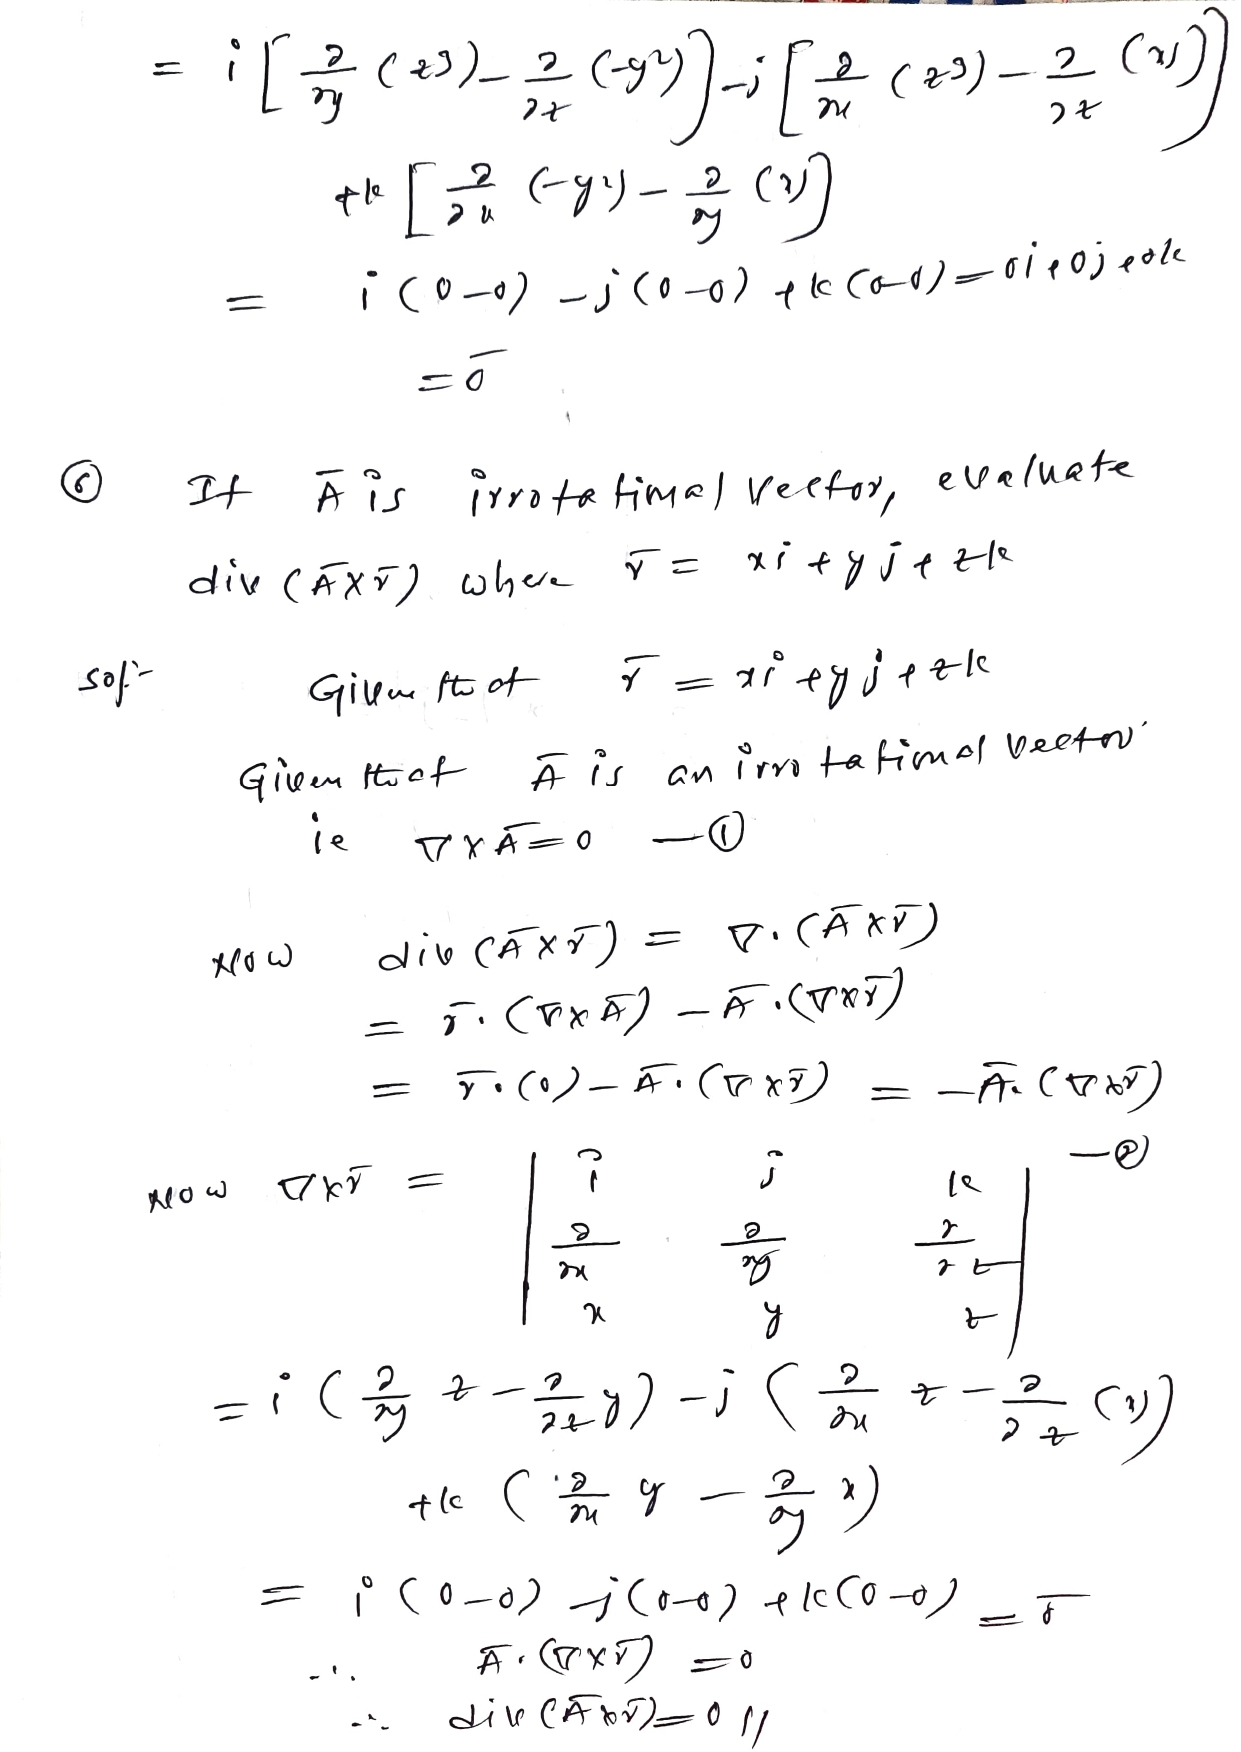 = i [ ∂/∂y (z³) - ∂/∂z (-y²) ] - j [ ∂/∂x (z³) - ∂/∂z (x) ]
+k [ ∂/∂x (-y²) - ∂/∂y (x) ]
= i (0-0) - j (0-0) + k (0-0) = 0i+0j+0k
= 0̄
⑥ If Ā is irrotational vector, evaluate
div (Ā×r̄) where r̄ = xi + yj + zk
Sol:- Given that r̄ = xi + yj + zk
Given that Ā is an irrotational vector
ie ∇×Ā = 0 —①
Now div (Ā×r̄) = ∇.(Ā×r̄)
= r̄.(∇×Ā) - Ā.(∇×r̄)
= r̄.(0) - Ā.(∇×r̄) = -Ā.(∇×r̄)
—②
Now ∇×r̄ = | i j k
∂/∂x ∂/∂y ∂/∂z
x y z |
= i ( ∂/∂y z - ∂/∂z y ) - j ( ∂/∂x z - ∂/∂z (x) )
+k ( ∂/∂x y - ∂/∂y x )
= i (0-0) - j (0-0) + k (0-0) = 0̄
∴ Ā.(∇×r̄) = 0
∴ div (Ā×r̄) = 0 //